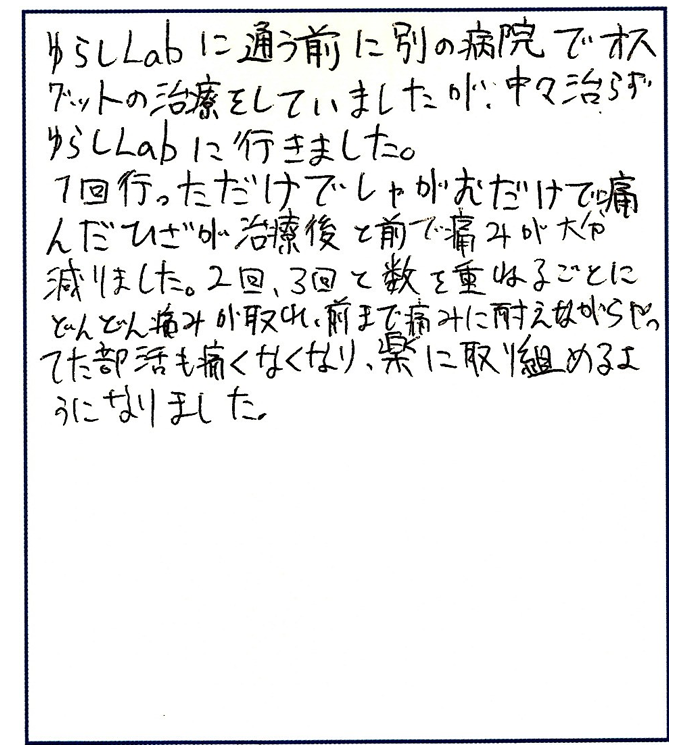 ゆらしLabに通う前に別の病院でオス
グットの治療をしていましたが、中々治らず
ゆらしLabに行きました。
1回行っただけでしゃがむだけで痛
んだひざが治療後と前で痛みが大分
減りました。2回、3回と数を重ねるごとに
どんどん痛みが取れ、前まで痛みに耐えながらやっ
てた部活も痛くなくなり、楽に取り組めるよ
うになりました。